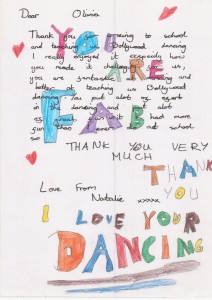 Dear Olivia
Thank you for coming to school
and teaching Bollywood dancing
I really enjoyed it especially how
you made it challenging for us,
you are fantastic at dancing and
better at teaching us Bollywood
dancing. You put alot of effort
in the dancing and alot
it had more
fun than ever at school
so
YOU
ARE
FAB
THANK YOU VERY
MUCH
THANK
YOU
Love From
Natalie xxxxx
I LOVE YOUR
DANCING